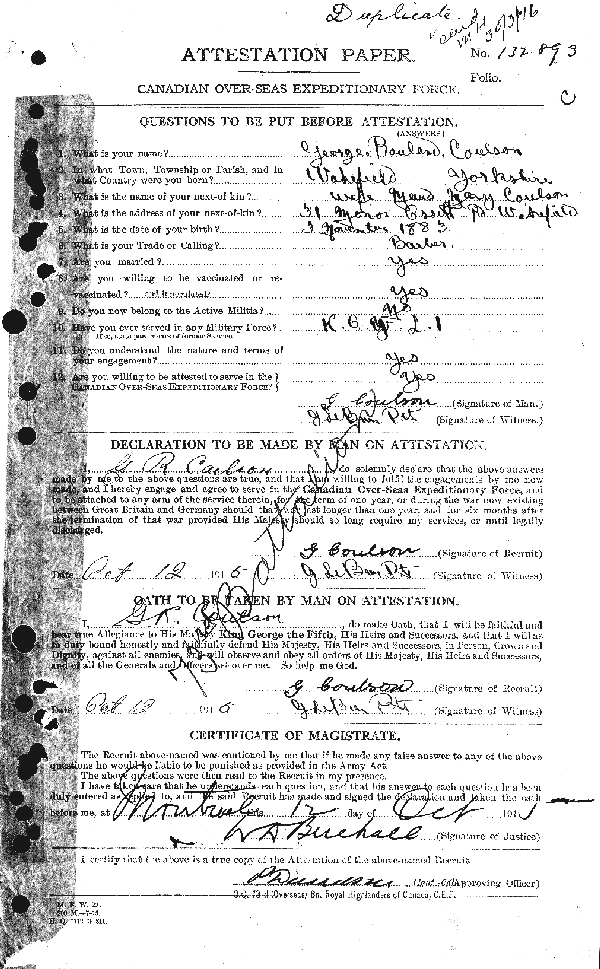 Duplicate
ATTESTATION PAPER.
No. 132893
Folio.
CANADIAN OVER-SEAS EXPEDITIONARY FORCE.
QUESTIONS TO BE PUT BEFORE ATTESTATION.
(ANSWERS)
1. What is your name? George Coulson
2. In what Town, Township or Parish, and in
what Country were you born? Wakefield Yorkshire
3. What is the name of your next-of-kin? wife Maud Mary Coulson
4. What is the address of your next-of-kin? 31 Manor Wakefield
5. What is the date of your birth? 3 November 1883
6. What is your Trade or Calling? Barber
7. Are you married? Yes
8. Are you willing to be vaccinated or re-
vaccinated? and inoculated? Yes
9. Do you now belong to the Active Militia? No
10. Have you ever served in any Military Force? K. O. Y. L. I
If so, state particulars of former Service.
11. Do you understand the nature and terms of
your engagement? Yes
12. Are you willing to be attested to serve in the
CANADIAN OVER-SEAS EXPEDITIONARY FORCE? Yes
G Coulson (Signature of Man.)
(Signature of Witness.)
DECLARATION TO BE MADE BY MAN ON ATTESTATION.
I, G R Coulson, do solemnly declare that the above answers
made by me to the above questions are true, and that I am willing to fulfil the engagements by me now
made, and I hereby engage and agree to serve in the Canadian Over-Seas Expeditionary Force, and
to be attached to any arm of the service therein, for the term of one year, or during the war now existing
between Great Britain and Germany should that war last longer than one year, and for six months after
the termination of that war provided His Majesty should so long require my services, or until legally
discharged.
G Coulson (Signature of Recruit)
Date Oct 12 1915 (Signature of Witness)
OATH TO BE TAKEN BY MAN ON ATTESTATION.
I, G R Coulson, do make Oath, that I will be faithful and
bear true Allegiance to His Majesty King George the Fifth, His Heirs and Successors, and that I will as
in duty bound honestly and faithfully defend His Majesty, His Heirs and Successors, in Person, Crown and
Dignity, against all enemies, and will observe and obey all orders of His Majesty, His Heirs and Successors,
and of all the Generals and Officers set over me. So help me God.
G Coulson (Signature of Recruit)
Date Oct 12 1915 (Signature of Witness)
CERTIFICATE OF MAGISTRATE.
The Recruit above-named was cautioned by me that if he made any false answer to any of the above
questions he would be liable to be punished as provided in the Army Act.
The above questions were then read to the Recruit in my presence.
I have taken care that he understands each question, and that his answer to each question has been
duly entered as replied to, and the said Recruit has made and signed the declaration and taken the oath
before me, at Montreal this 12 day of Oct 1915
(Signature of Justice)
I certify that the above is a true copy of the Attestation of the above-named Recruit.
(Approving Officer)
O.C. 73rd (Overseas) Bn. Royal Highlanders of Canada, C.E.F.
M. F. W. 23.